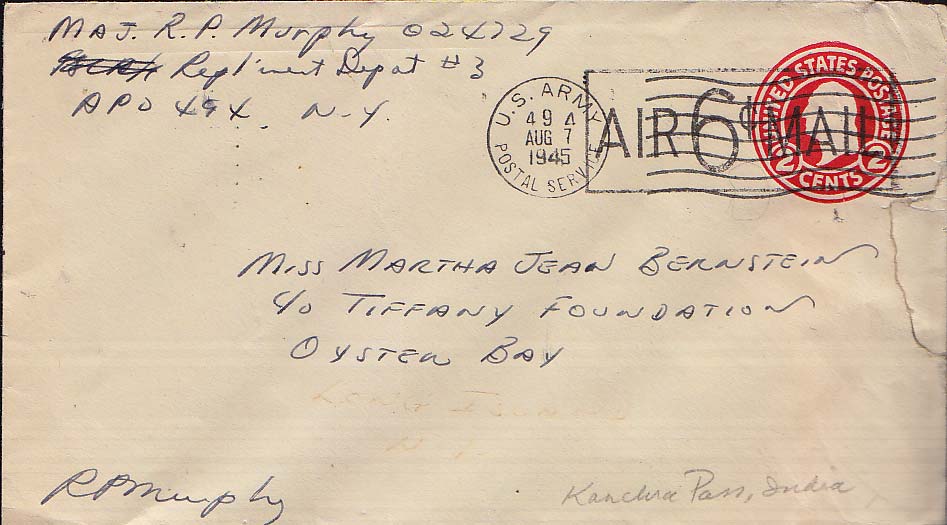 MAJ. R. P. Murphy O24729
Repl'ment Depot #3
APO 494. N.Y.
U.S. ARMY
POSTAL SERVICE
49 4
AUG 7
1945
AIR 6¢ MAIL
UNITED STATES POSTAGE
2 CENTS 2
MISS MARTHA JEAN BERNSTEIN
c/o TIFFANY FOUNDATION
OYSTER BAY
RPMurphy
Pass, India